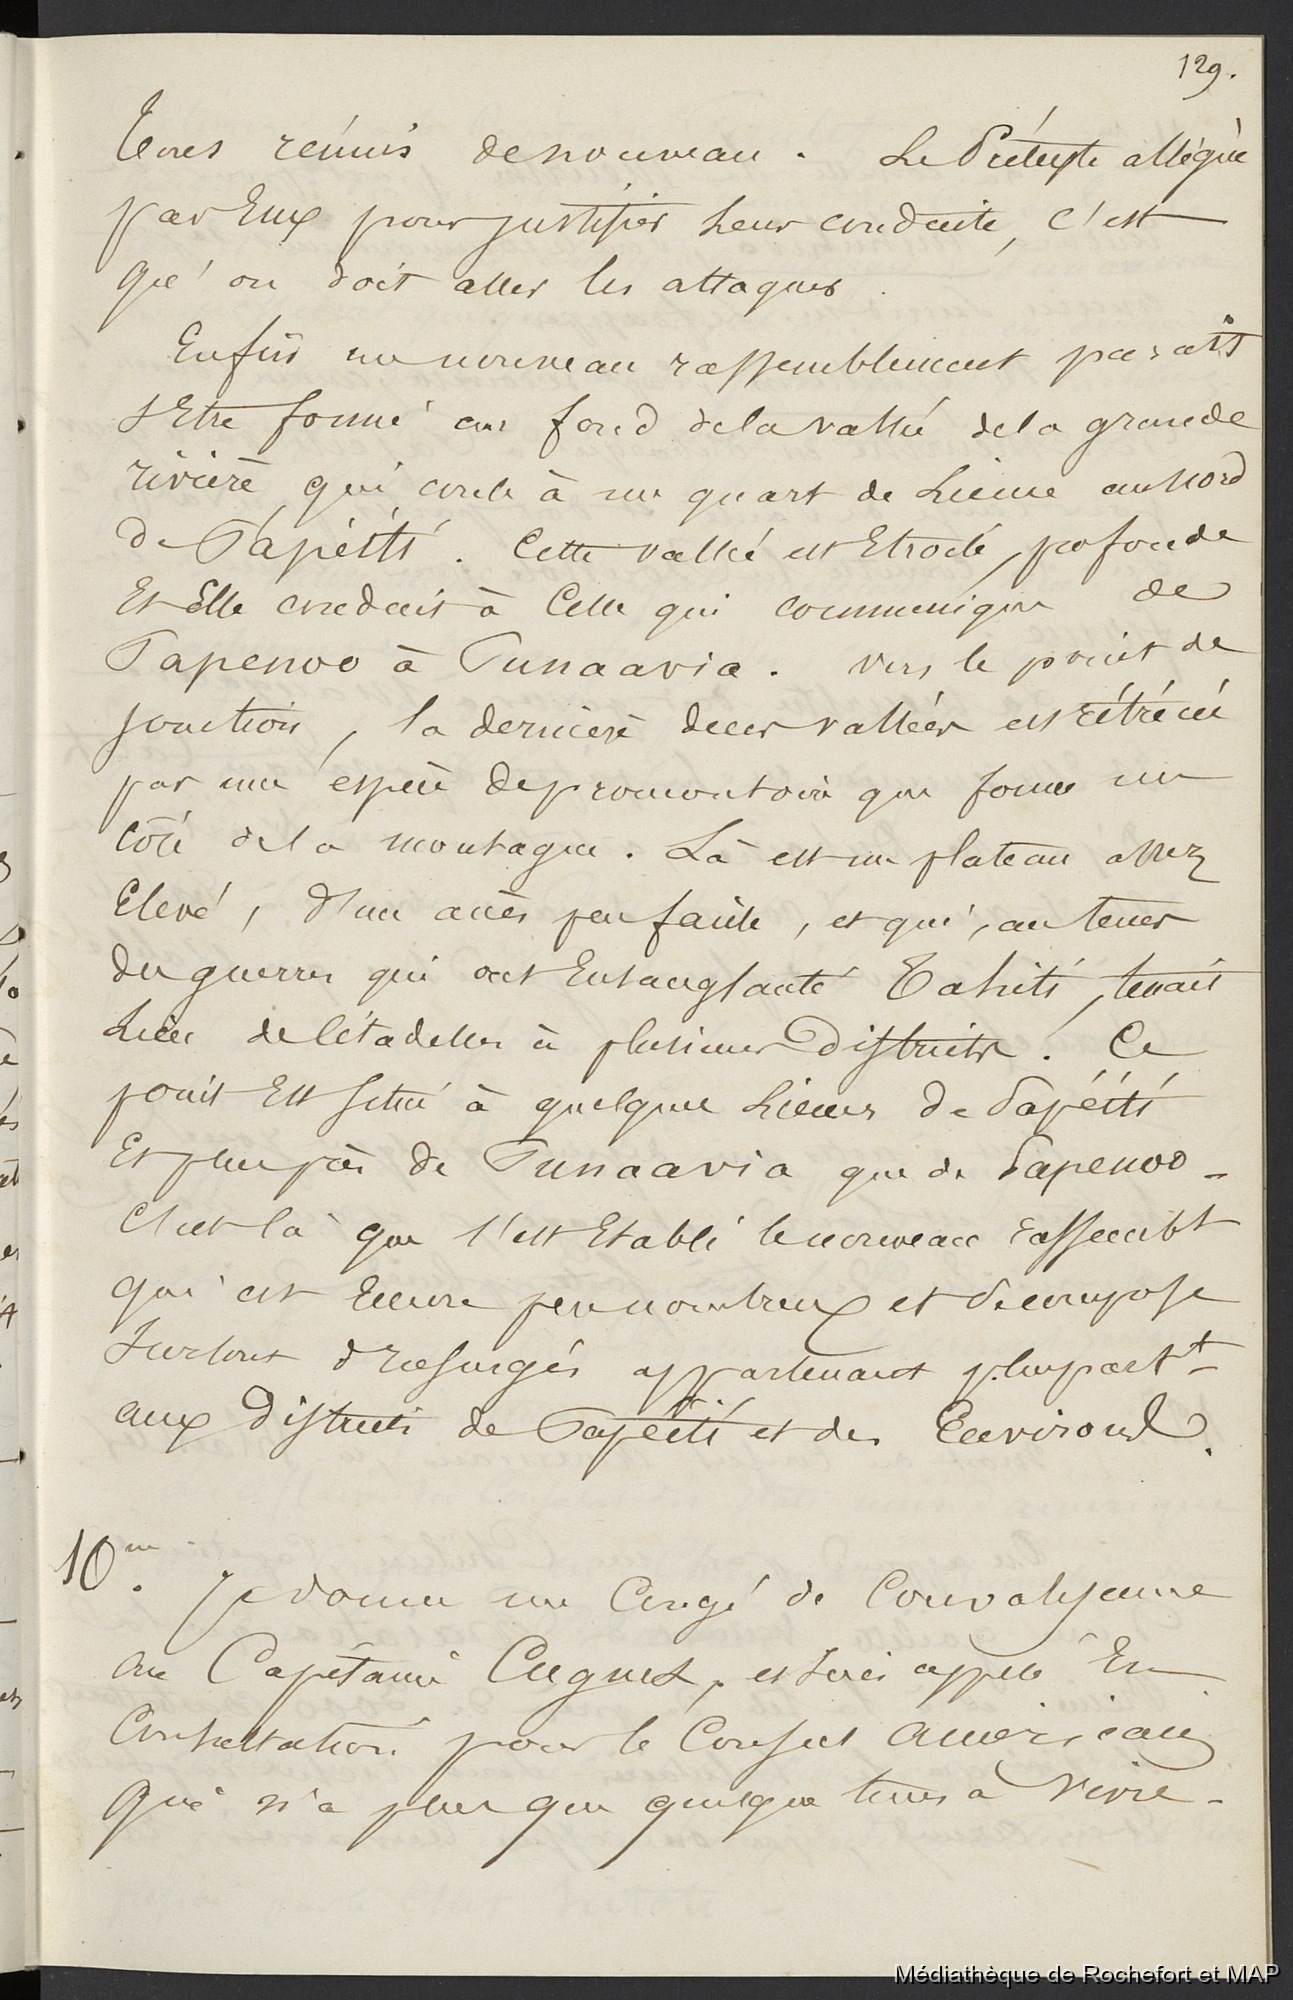 129.
tous réunis de nouveau. Le Prétexte allégué
par Eux pour justifier Leur conduite, c'est
qu'on doit aller les attaquer.
Enfin un nouveau rassemblement parait
s'Etre formé au fond de la vallée de la grande
rivière qui coule à un quart de Lieue au Nord
de Papéiti. Cette vallée est Etroite, profonde
Et Elle conduit à Celle qui communique de
Papenoo à Punaavia. Vers le point de
jonction, la dernière de ces vallées est rétrécie
par une espèce de promontoire que forme un
côté de la montagne. Là est un plateau assez
Elevé, d'un accès peu facile, et qui, au tems
des guerres qui ont Ensanglanté Tahiti, tenait
Lieu de Citadelles à plusieurs Districts. Ce
point Est situé à quelques Lieues de Papéiti
Et plus près de Punaavia que de Papenoo -
C'est là que s'est Etabli le nouveau rassemblt
qui est Encore peu nombreux et se compose
surtout d'insurgés appartenant plupartt
aux Districts de Papéiti et des Environs.
10me. Je donne un Congé de Convalescence
au Capitaine Cugnet, et suis appelé En
Consultation pour le Consul américain
qui n'a plus que quelque tems à vivre -
Médiathèque de Rochefort et MAP